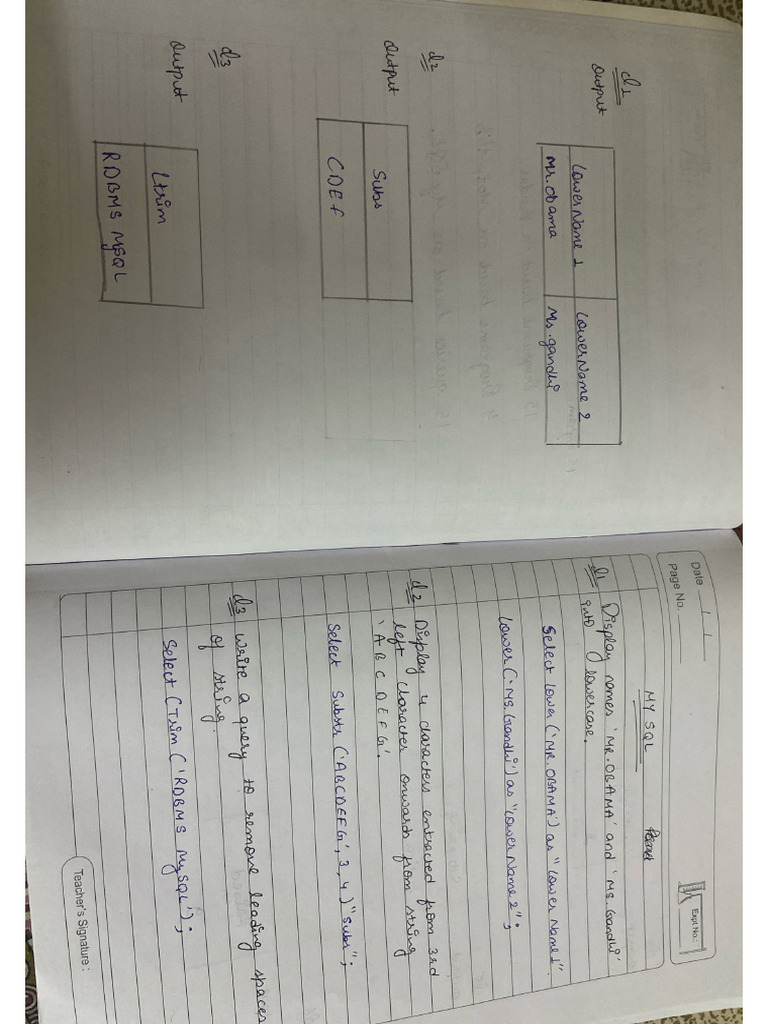 Q1
Output
Lower Name 1 Lower Name 2
Mr. Obama Ms. gandhi
Q2
Output
Subs
CDEF
Q3
Output
Ltrim
RDBMS MySQL
Date
Page No.
Expt No.:
MY SQL
Q1 Display names 'MR. OBAMA' and 'MS. Gandhi'
into lowercase.
Select Lower ('MR. OBAMA') as "Lower Name 1".
Lower ('MS. Gandhi') as "Lower Name 2";
Q2 Display 4 characters extracted from 3rd
left character onwards from string
'ABCDEFG'.
Select Substr ('ABCDEFG', 3, 4) "Subs";
Q3 Write a query to remove leading spaces
of string.
Select (Trim ('RDBMS MySQL');
Teacher's Signature :